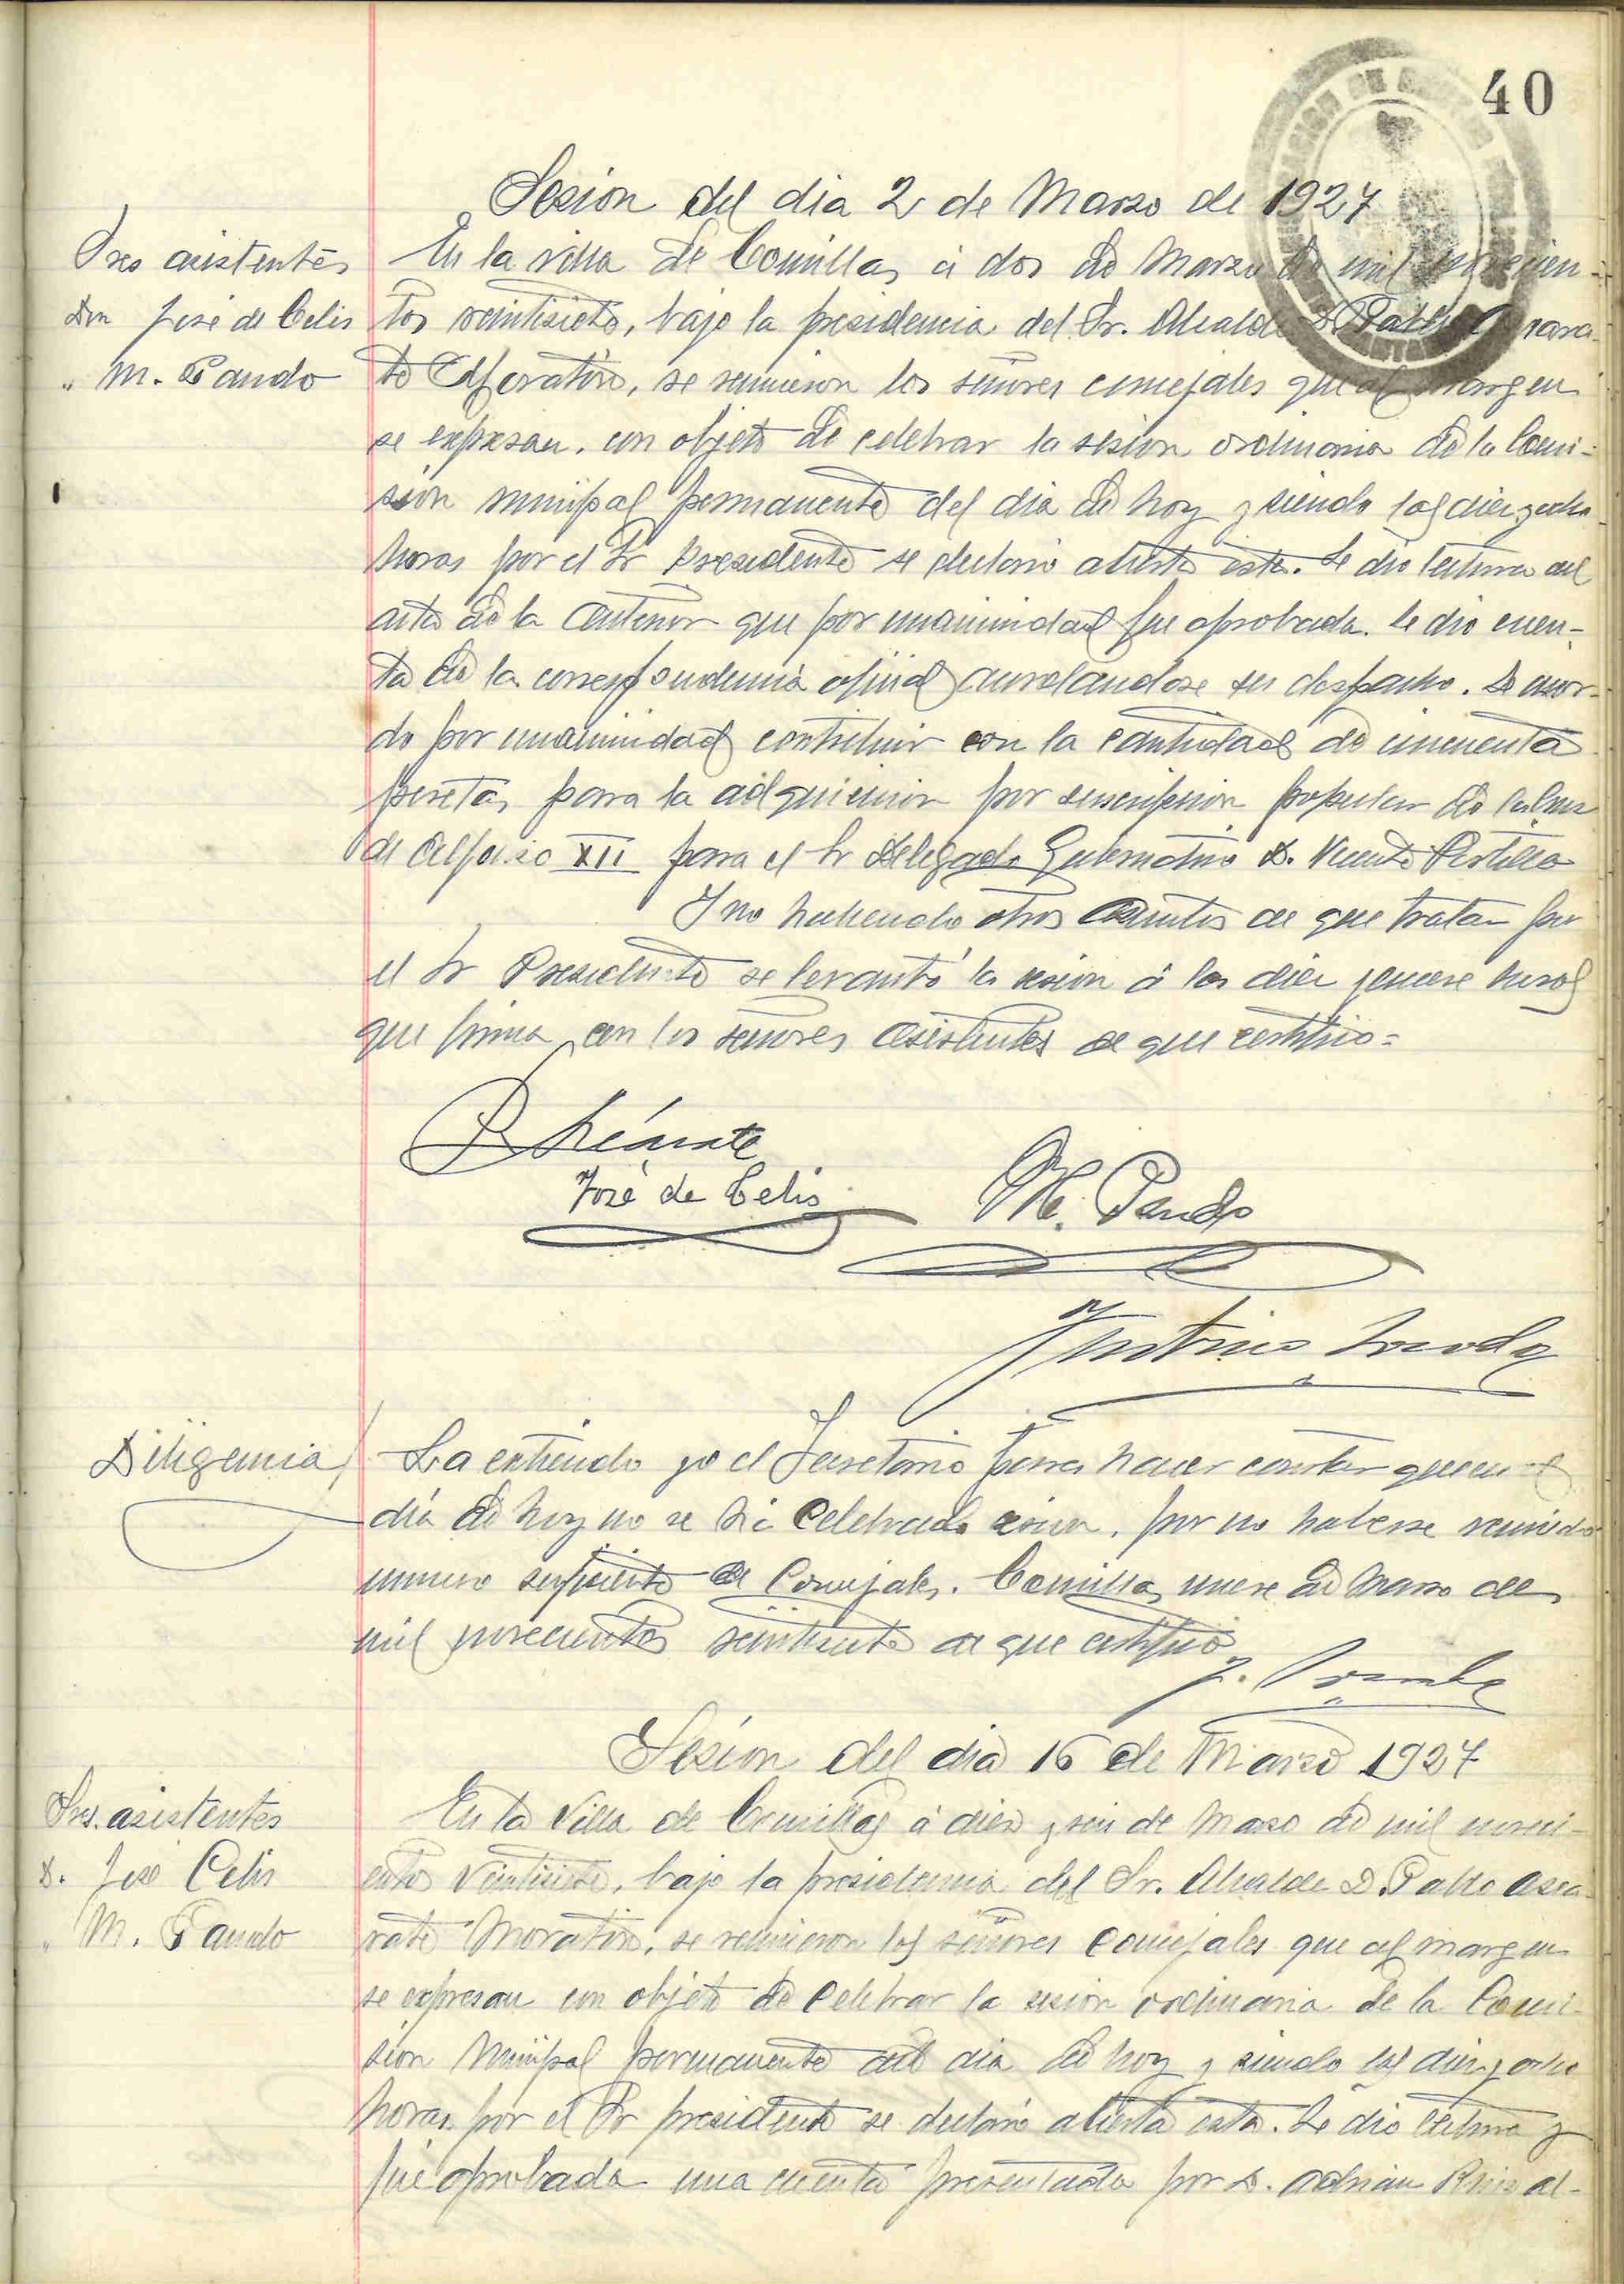 40
Sesion del dia 2 de Marzo de 1927
Sres asistentes
Don José de Celis
" M. Pando
En la villa de Comillas á dos de Marzo de mil novecien-
tos veintisiete, bajo la presidencia del Sr. Alcalde D. Pablo
te Moratino, se reunieron los señores concejales que al margen
se expresan, con objeto de celebrar la sesion ordinaria de la Comi-
sion municipal permanente del dia de hoy y siendo las diez y ocho
horas por el Sr Presidente se declaró abierta esta. Se dio lectura del
acta de la anterior que por unanimidad fue aprobada. Se dio cuen-
ta de la correspondencia oficial acordandose su despacho. Se acor-
do por unanimidad contribuir con la cantidad de cincuenta
pesetas para la adquisicion por suscripcion popular de la Cruz
de Alfonso XII para el Sr Delegado Gubernativo D. Vicente Portilla
Y no habiendo otros asuntos de que tratar por
el Sr Presidente se levantó la sesion á las diez y nueve horas
que firma con los señores asistentes de que certifico=
José de Celis
M. Pando
Diligencia
La extiendo yo el Secretario para hacer constar que en el
dia de hoy no se há celebrado sesion, por no haberse reunido
numero suficiente de Concejales. Comillas nueve de Marzo de
mil novecientos veintisiete de que certifico
Sesión del dia 16 de Marzo 1927
Sres. asistentes
D. José Celis
" M. Pando
En la Villa de Comillas á diez y seis de Marzo de mil noveci-
entos veintisiete, bajo la presidencia del Sr. Alcalde D. Pablo Azca-
rate Moratino, se reunieron los señores concejales que al margen
se expresan con objeto de celebrar la sesion ordinaria de la Comi-
sion municipal permanente del dia de hoy y siendo las diez y ocho
horas por el Sr presidente se declaró abierta esta. Se dio lectura y
fué aprobada una cuenta presentada por D. Adrian Ruiz al-